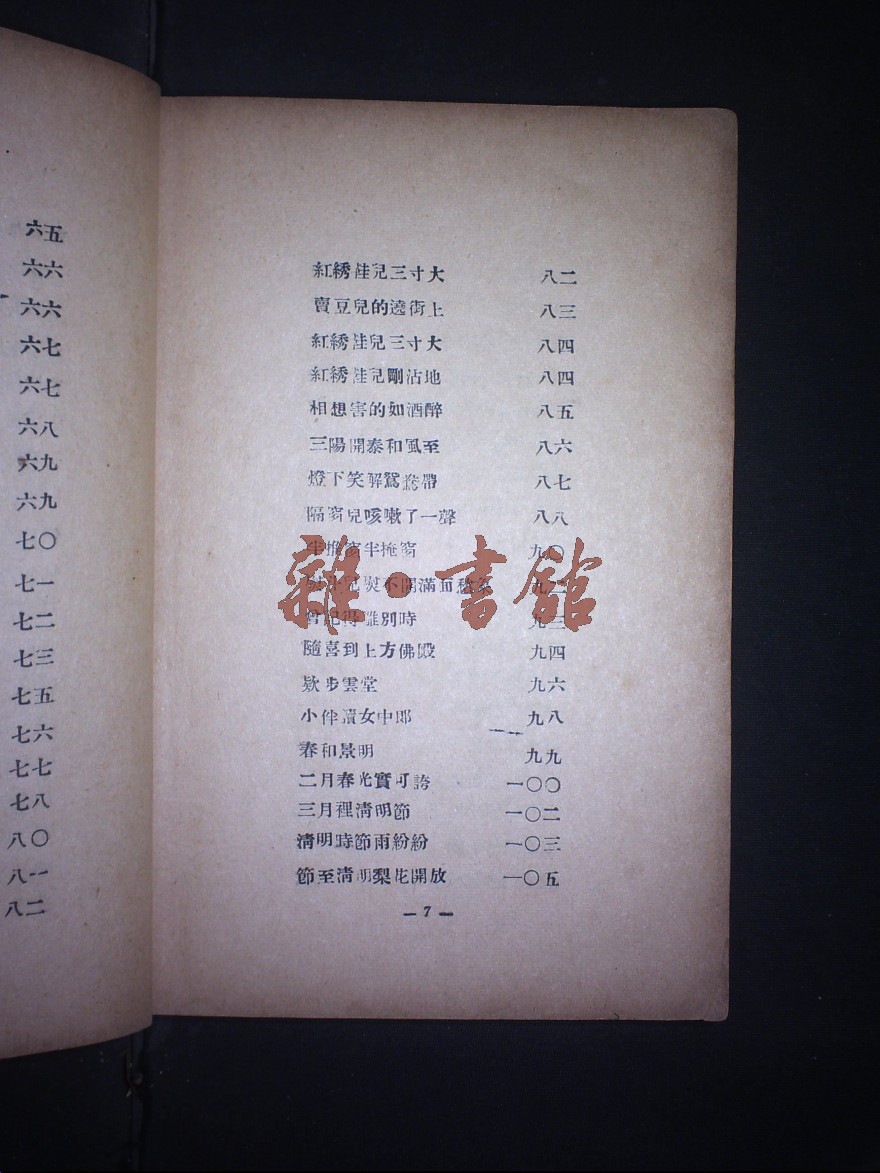 六五
六六
六六
六七
六七
六八
六九
六九
七〇
七一
七二
七三
七五
七六
七七
七八
八〇
八一
八二
紅綉鞋兒三寸大 八二
賣豆兒的遶街上 八三
紅綉鞋兒三寸大 八四
紅綉鞋兒剛沾地 八四
相想害的如酒醉 八五
三陽開泰和風至 八六
燈下笑解鴛鴦帶 八七
隔窗兒咳嗽了一聲 八八
半推窗半掩窗 九〇
兒熨不開滿面愁 九二
曾記得離別時 九三
隨喜到上方佛殿 九四
欵步雲堂 九六
小伴讀女中郎 九八
春和景明 九九
二月春光實可誇 一〇〇
三月裡淸明節 一〇二
淸明時節雨紛紛 一〇三
節至淸明梨花開放 一〇五
— 7 —
雜·書館